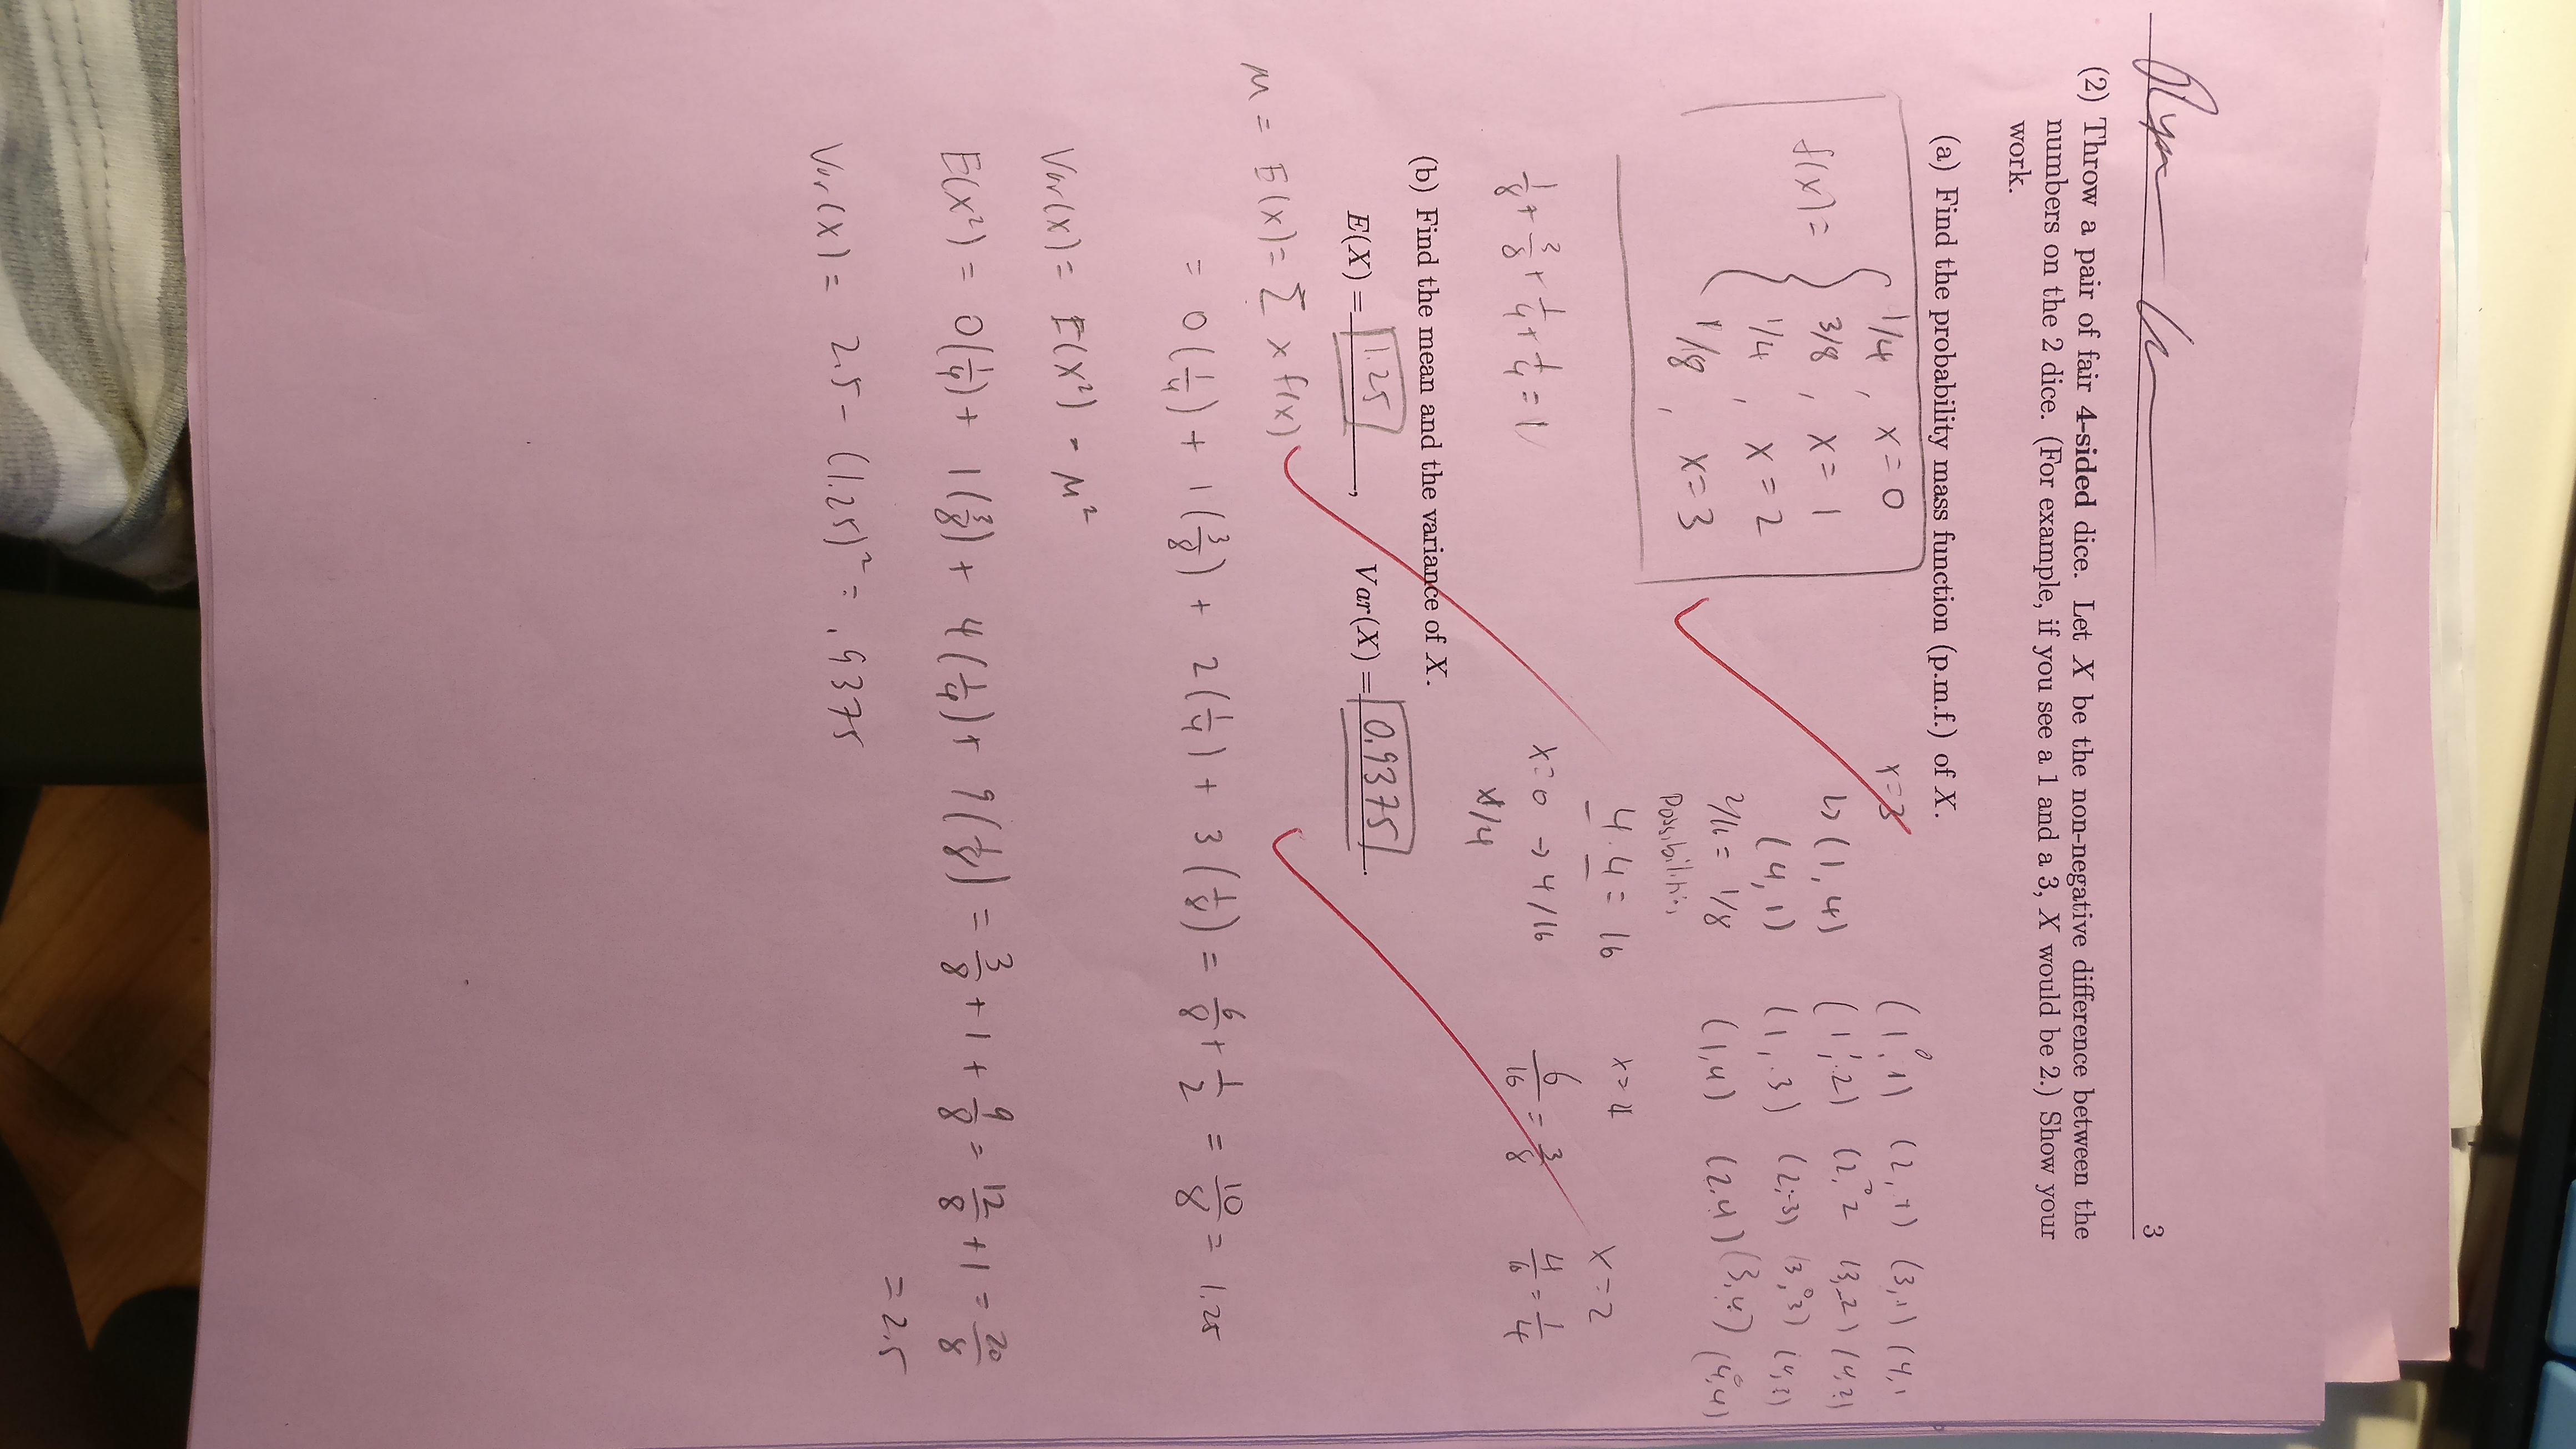 3
(2) Throw a pair of fair 4-sided dice. Let X be the non-negative difference between the
numbers on the 2 dice. (For example, if you see a 1 and a 3, X would be 2.) Show your
work.
(a) Find the probability mass function (p.m.f.) of X.
f(x) = { 1/4 , x=0
3/8 , x=1
1/4 , x=2
1/8 , x=3
1/8 + 3/8 + 1/4 + 1/4 = 1
x=3
↳ (1,4)
(4,1)
2/16 = 1/8
Possibilities
4 · 4 = 16
x=0 → 4/16
1/4
(1,1) (2,1) (3,1) (4,1
(1,2) (2,2 (3,2) (4,2)
(1,3) (2,3) (3,3) (4,3)
(1,4) (2,4) (3,4) (4,4)
x=1
6/16 = 3/8
x=2
4/16 = 1/4
(b) Find the mean and the variance of X.
E(X) = 1.25 , Var(X) = 0.9375 .
μ = E(x) = Σ x f(x)
= 0(1/4) + 1(3/8) + 2(1/4) + 3(1/8) = 6/8 + 1/2 = 10/8 = 1.25
Var(x) = E(x²) - μ²
E(x²) = 0(1/4) + 1(3/8) + 4(1/4) + 9(1/8) = 3/8 + 1 + 9/8 = 12/8 + 1 = 20/8
= 2.5
Var(x) = 2.5 - (1.25)² = .9375